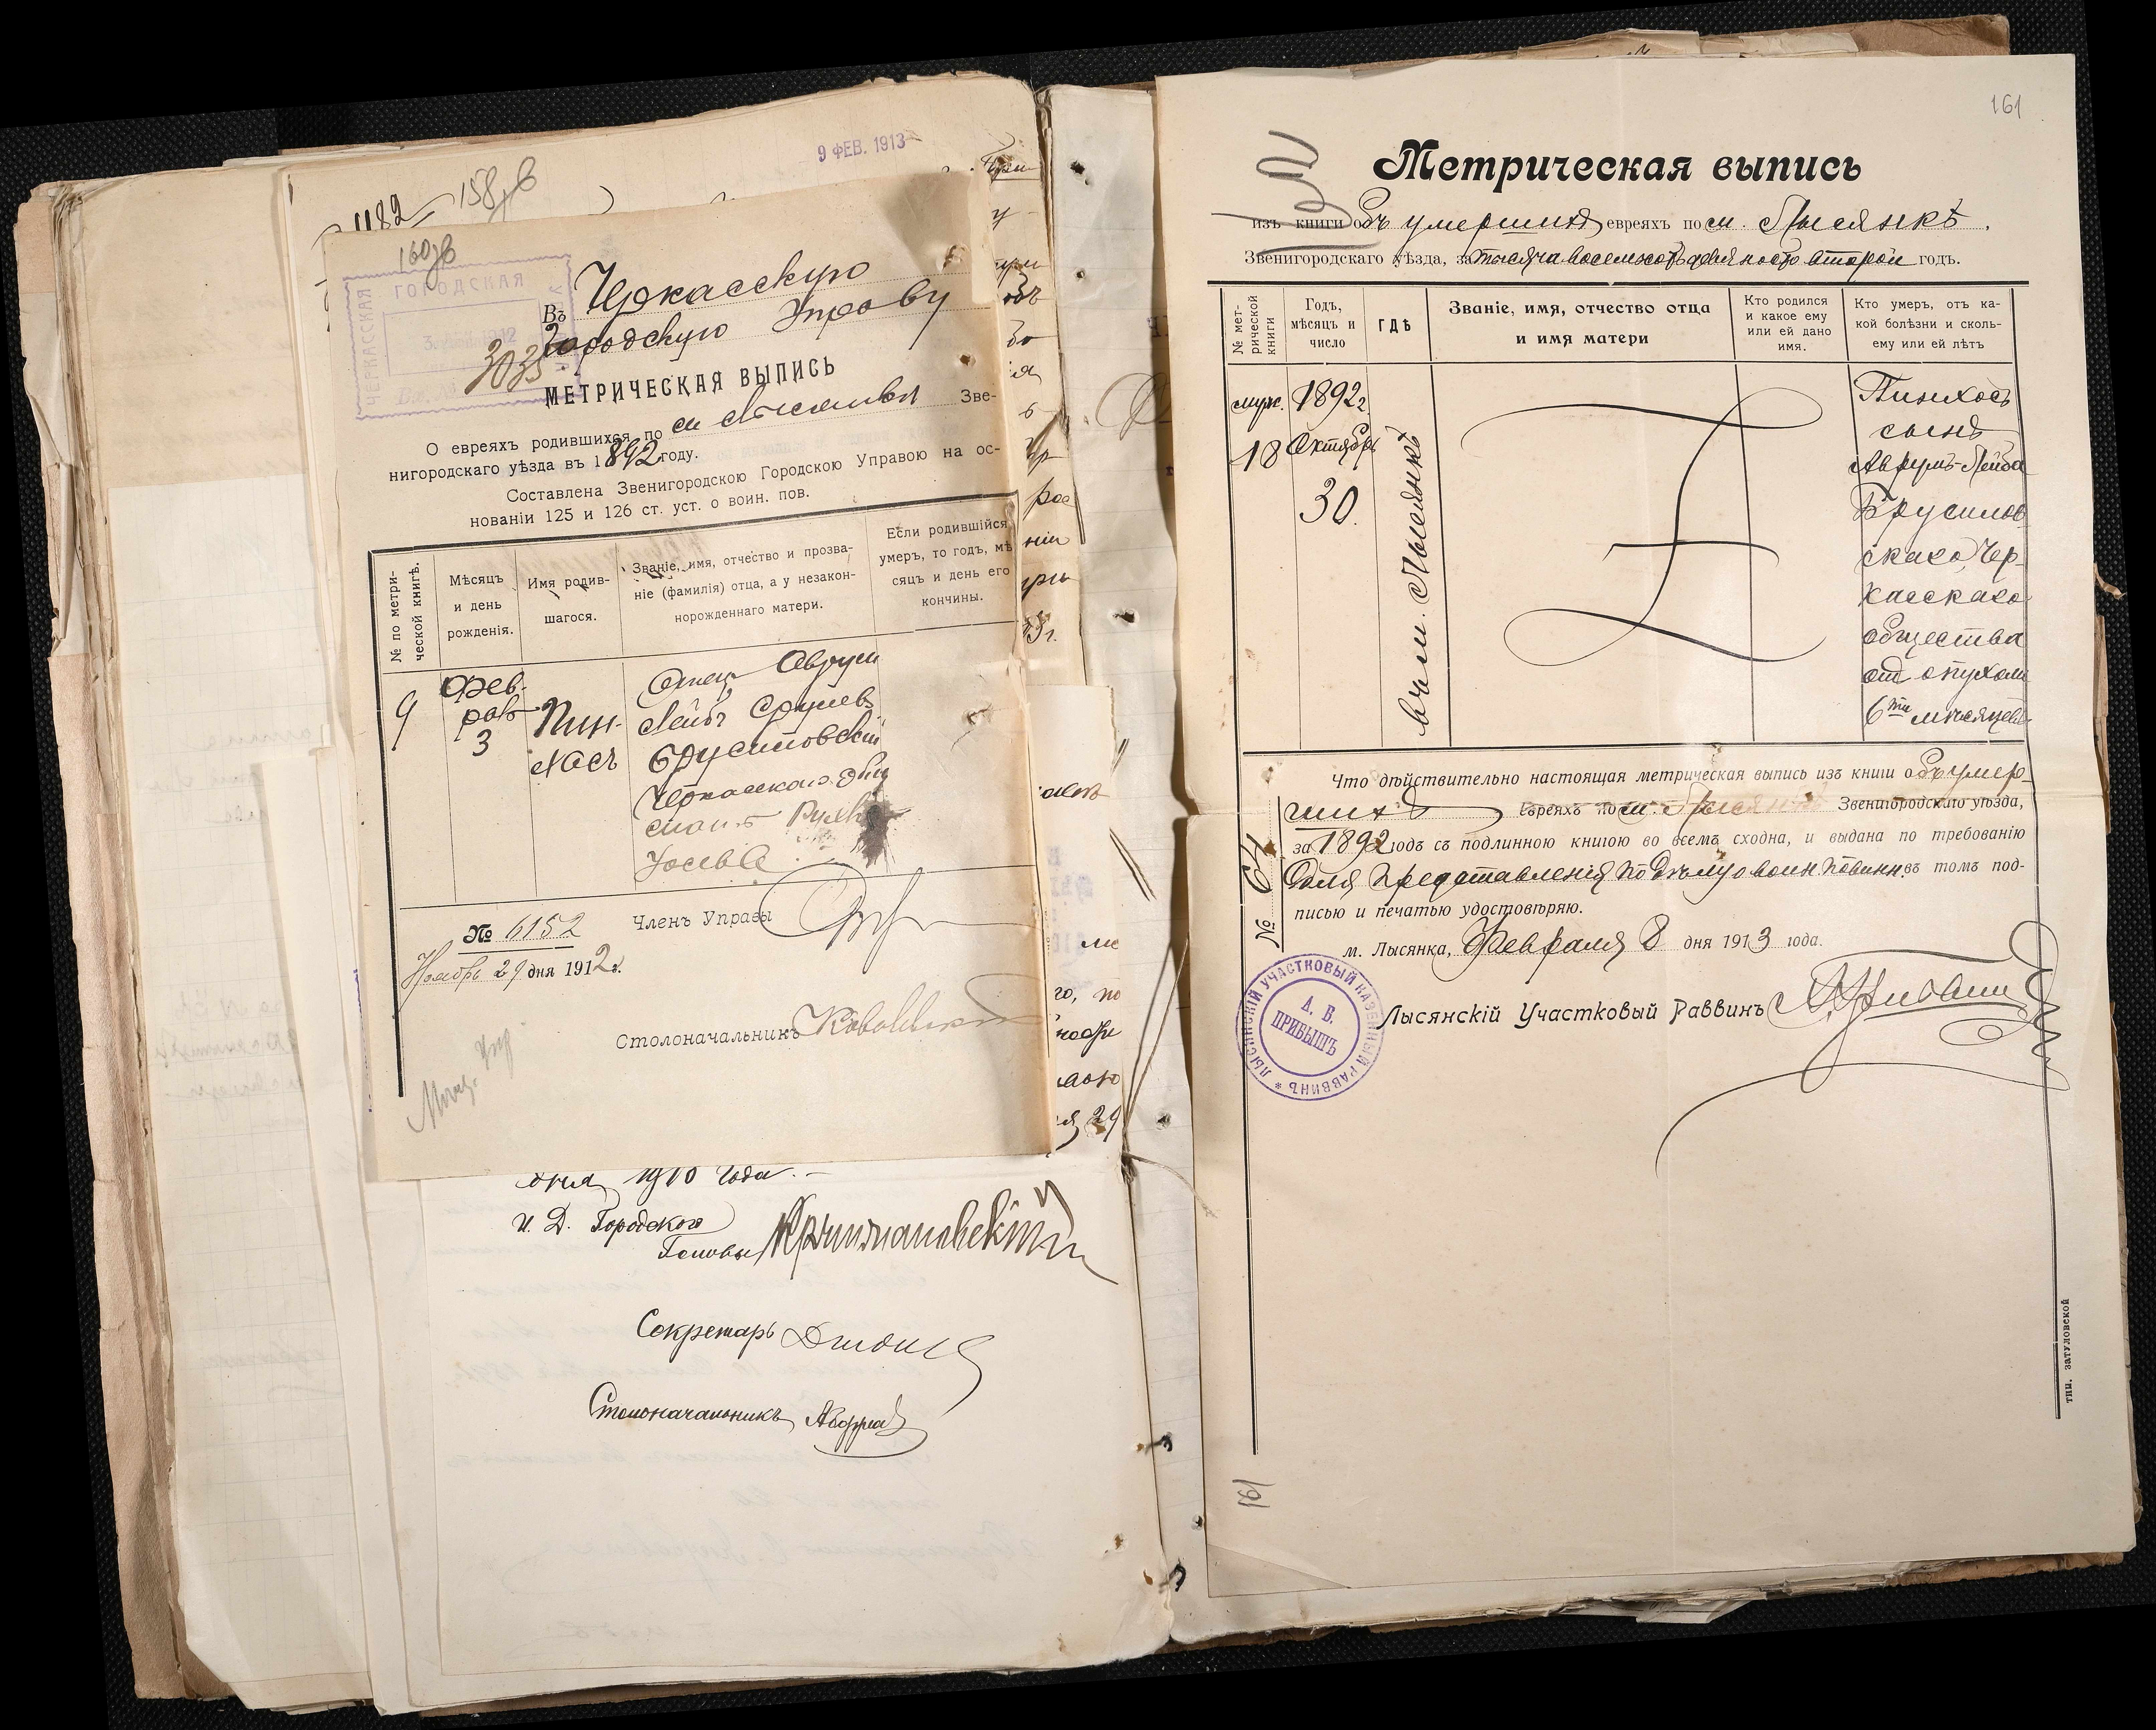 9 ФЕВ. 1913
1182
158 об
160 об
ЧЕРКАССКАЯ
ГОРОДСКАЯ
3035
Въ Черкасскую
Городскую Управу
МЕТРИЧЕСКАЯ ВЫПИСЬ
О евреяхъ родившихся по м Лысянкѣ Зве-
нигородскаго уѣзда въ 1892 году.
Составлена Звенигородскою Городскою Управою на ос-
нованіи 125 и 126 ст. уст. о воин. пов.
№ по метри-
ческой книгѣ.
Мѣсяцъ
и день
рожденія.
Имя родив-
шагося.
Званіе, имя, отчество и прозва-
ніе (фамилія) отца, а у незакон-
норожденнаго матери.
Если родившійся
умеръ, то годъ, мѣ
сяцъ и день его
кончины.
9
Фев-
раль
3
Пин-
хасъ
Отец Аврум
Лейбъ Срулев
Брусиловскій
Черкасскаго общ
мать
№ 6152
Членъ Управы
Ноябрь 29 дня 1912 г.
Столоначальникъ
дня 1910 года.-
И. Д. Городского
Головы
Секретарь
Столоначальникъ
161
Метрическая выпись
изъ книги объ умершихъ евреяхъ по м. Лысянкѣ.
Звенигородскаго уѣзда, за тысяча восемьсотъ девяносто второй годъ.
№ мет-
рической
книги
Годъ,
мѣсяцъ и
число
ГДѢ
Званіе, имя, отчество отца
и имя матери
Кто родился
и какое ему
или ей дано
имя.
Кто умеръ, отъ ка-
кой болѣзни и сколь-
ему или ей лѣтъ
муж.
18
1892 г.
Октябрь
30.
въ м. Лысянкѣ
Пинхосъ
сынъ
Аврумъ-Лейба
Брусилов
скаго, Чер-
касскаго
общества
отъ опухоли
6ти мѣсяцевъ
Что дѣйствительно настоящая метрическая выпись изъ книги объ умер-
шихъ евреяхъ по м. Лысянкѣ Звенигородскаго уѣзда,
за 1892 годъ съ подлинною книгою во всемъ сходна, и выдана по требованію
для представленія по дѣлу о воин. повин. въ томъ под-
писью и печатью удостовѣряю.
№ 64
м. Лысянка, Февраля 8 дня 1913 года.
Лысянскій Участковый Раввинъ
ЛЫСЯНСКІЙ УЧАСТКОВЫЙ КАЗЕННЫЙ РАВВИНЪ *
А. В.
ПРИБЫШЪ
161
тип. затуловской